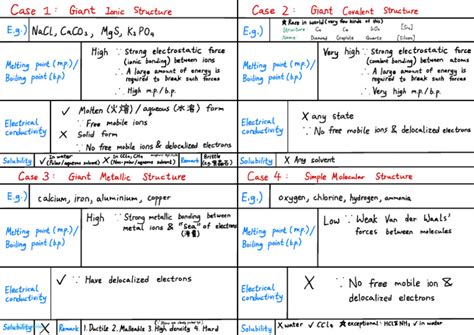 Case 1: Giant Ionic Structure
E.g.) NaCl, CaCO₃, MgS, K₃PO₄
Melting point (m.p.)/
Boiling point (b.p.)
High ∵ Strong electrostatic force
(ionic bonding) between ions
∴ A large amount of energy is
required to break such forces
∴ High m.p./b.p.
Electrical
conductivity
✓ Molten (火熔) / aqueous (水溶) form
∵ Free mobile ions
X Solid form
∵ No free mobile ions & delocalized electrons
Solubility ✓ In water
(Polar / aqueous solvent)
X In CCl₄, CH₄
(Non-polar / aqueous solvent)
Remark Brittle
Case 2: Giant Covalent Structure
E.g.) ★ Rare in world (very few kinds of this)
Structure C C SiO₂ Si
Diamond Graphite Quartz
Melting point (m.p.)/
Boiling point (b.p.)
Very high ∵ Strong electrostatic force
(covalent bonding) between atoms
∴ A large amount of energy is
required to break such forces
∴ Very high m.p./b.p.
Electrical
conductivity
X any state
∵ No free mobile ions & delocalized electrons
Solubility X Any solvent
Case 3: Giant Metallic Structure
E.g.) calcium, iron, aluminium, copper
Melting point (m.p.)/
Boiling point (b.p.)
High ∵ Strong metallic bonding between
metal ions & "sea" of electrons
Electrical
conductivity
✓ ∵ Have delocalized electrons
Solubility X Remark 1. Ductile 2. Malleable 3. High density 4. Hard
Case 4: Simple Molecular Structure
E.g.) oxygen, chlorine, hydrogen, ammonia
Melting point (m.p.)/
Boiling point (b.p.)
Low ∵ Weak Van der Waals'
forces between molecules
Electrical
conductivity
X ∵ No free mobile ion &
delocalized electrons
Solubility X water ✓ CCl₄ ★ exceptional: HCl & NH₃ ✓ in water